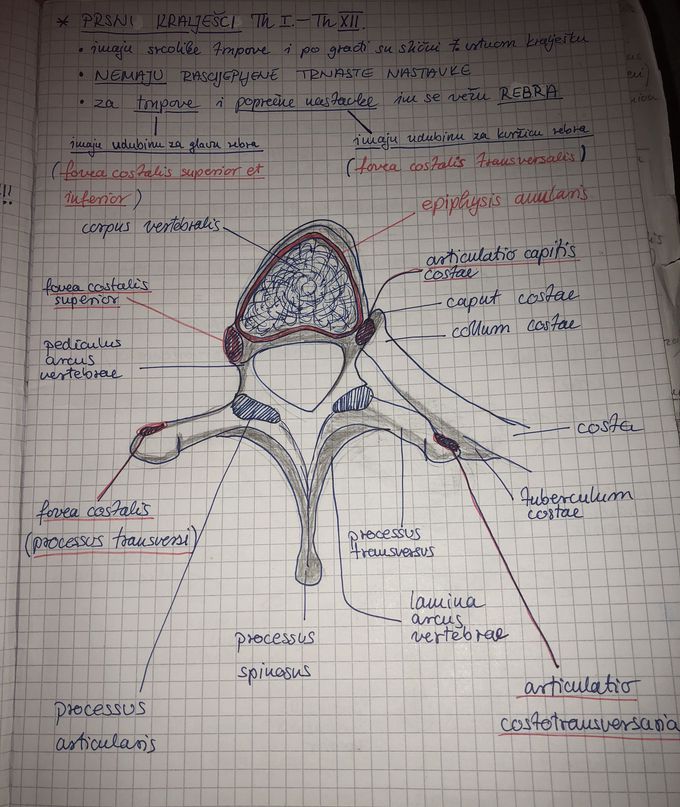 * PRSNI KRALJEŠCI Th I. – Th XII.
• imaju srcolike trupove i po građi su slični 7. vratnom kralješku
• NEMAJU RASCIJEPLJENE TRNASTE NASTAVKE
• za trupove i poprečne nastavke im se vežu REBRA
imaju udubinu za glavu rebra
imaju udubinu za kvržicu rebra
(fovea costalis superior et
inferior)
(fovea costalis transversalis)
epiphysis anularis
corpus vertebralis
articulatio capitis
costae
fovea costalis
superior
caput costae
collum costae
pediculus
arcus
vertebrae
costa
tuberculum
costae
fovea costalis
(processus transversi)
processus
transversus
lamina
arcus
vertebrae
processus
spinosus
articulatio
costotransversaria
processus
articularis
!!